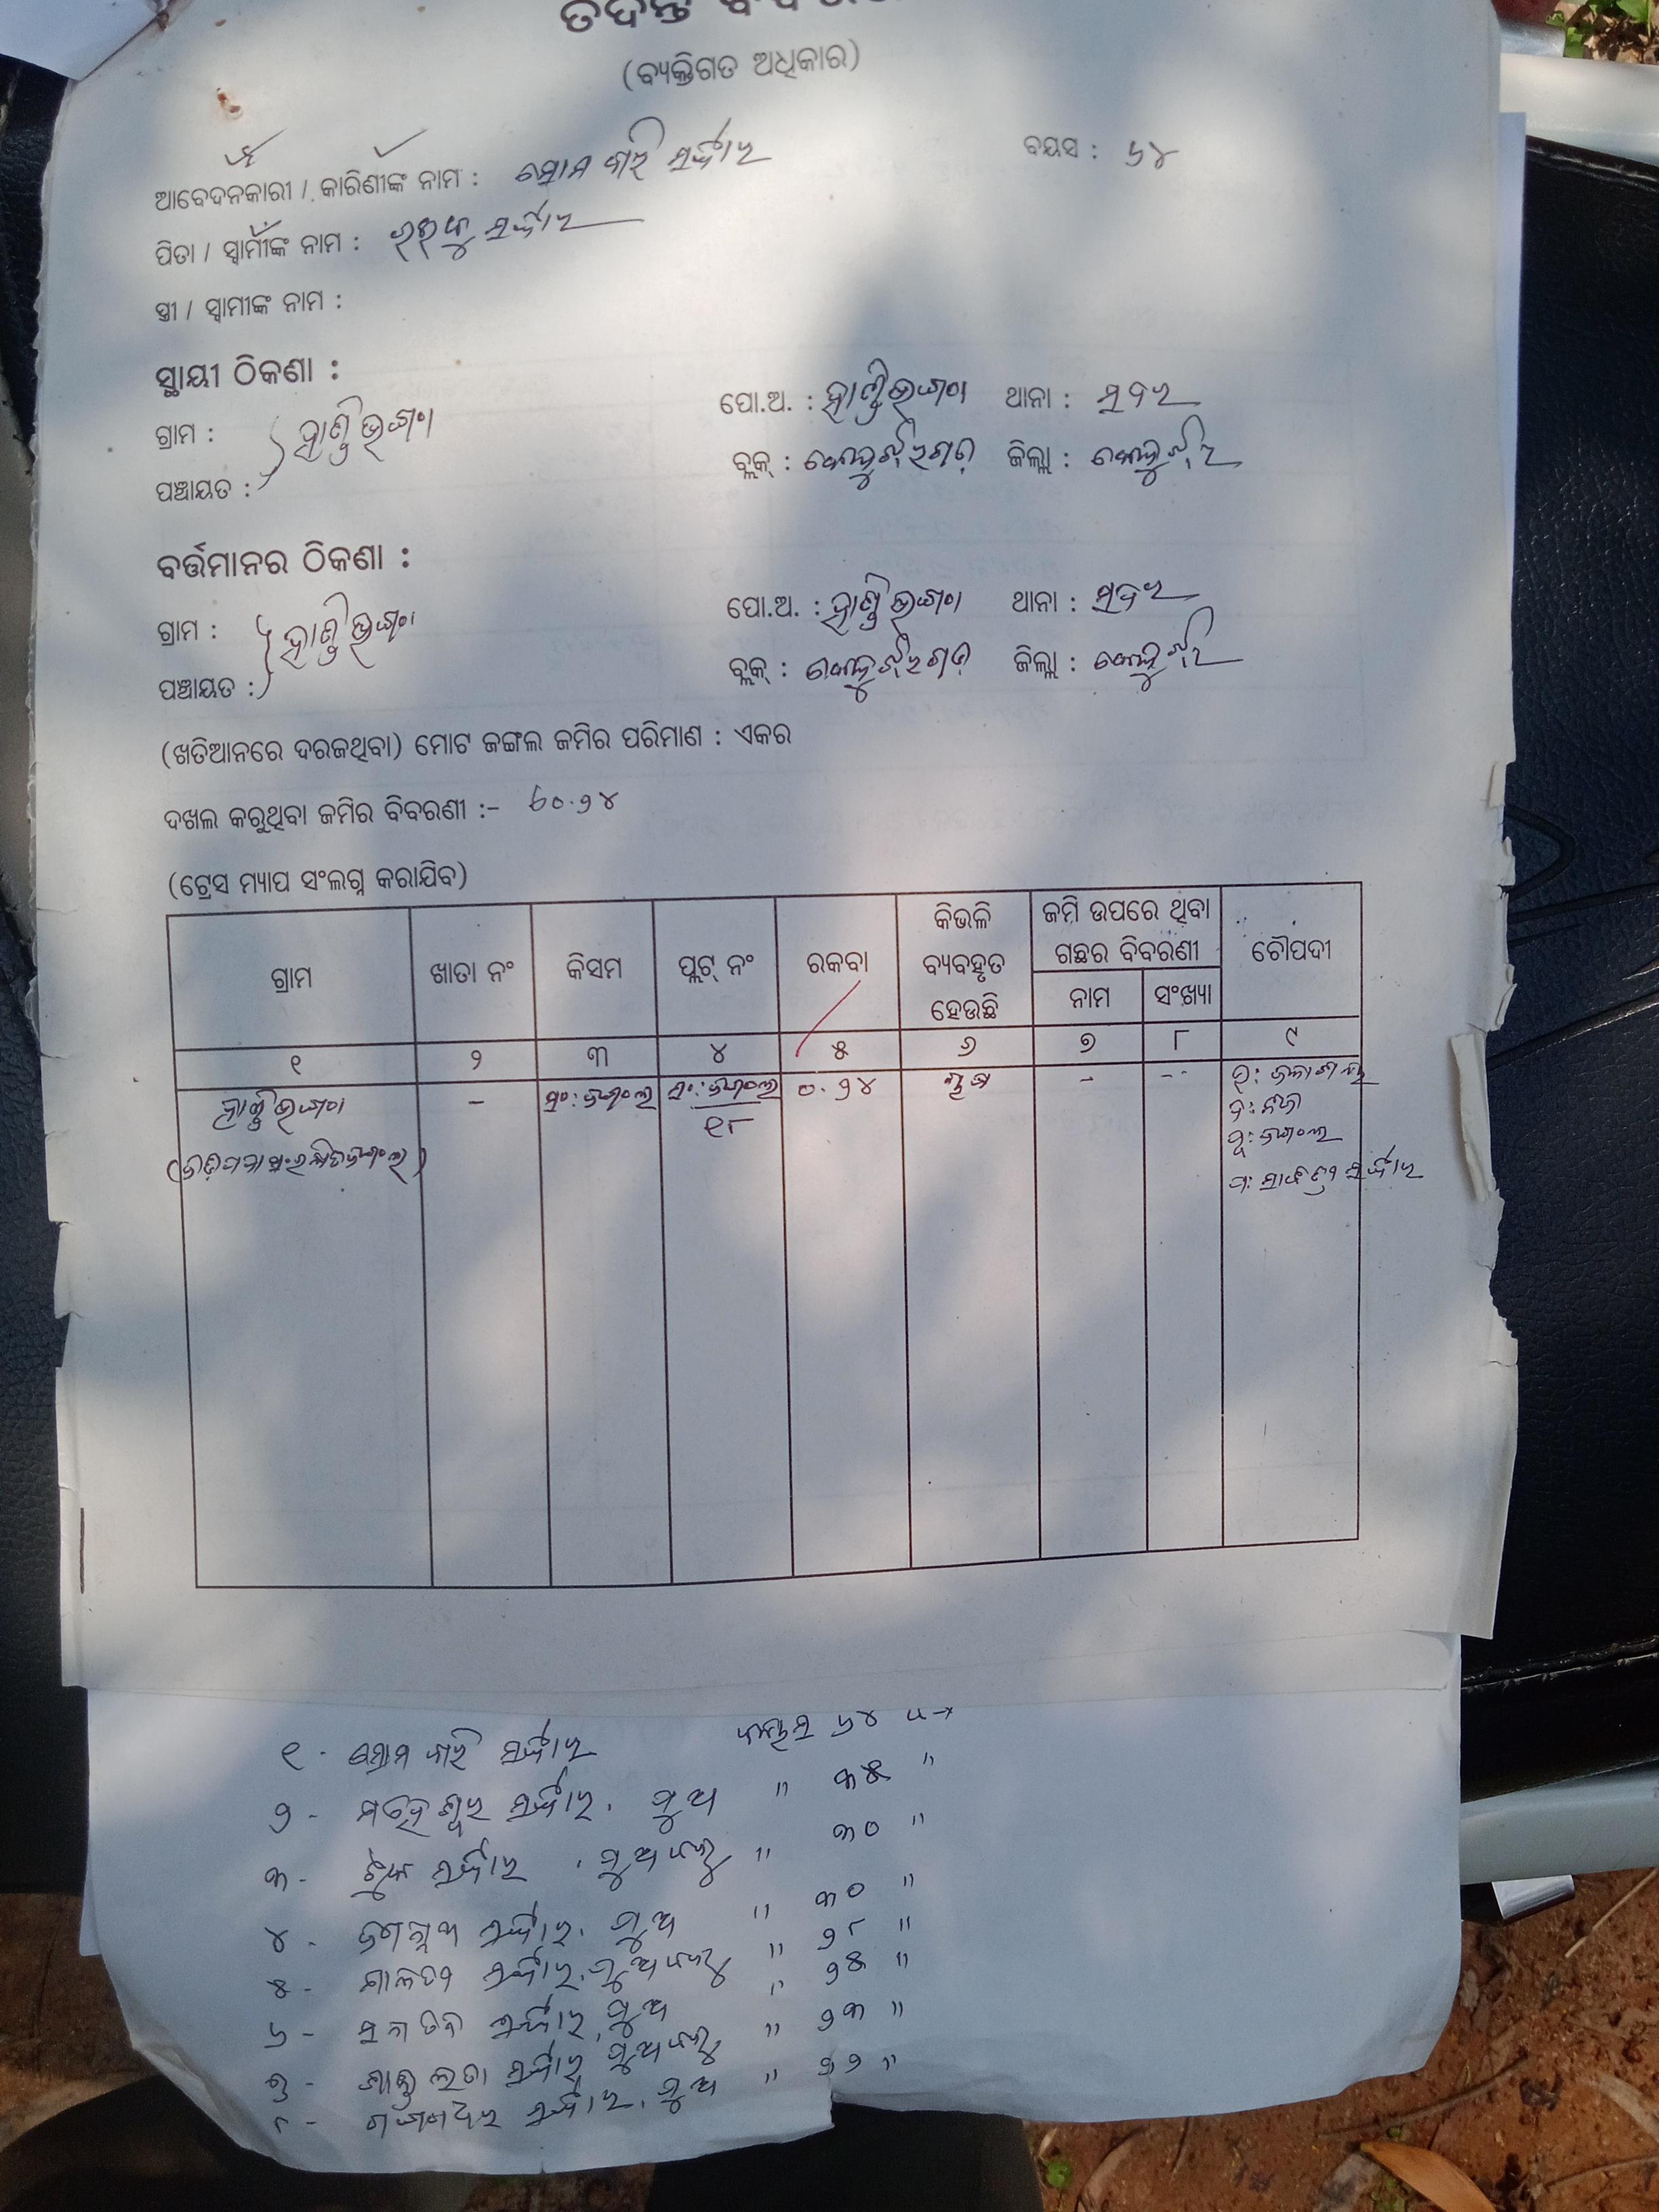 ତଦନ୍ତ
(ବ୍ୟକ୍ତିଗତ ଅଧିକାର)
ଆବେଦନକାରୀ / କାରିଣୀଙ୍କ ନାମ : ସର୍ଦ୍ଦାର ବୟସ : ୬୪
ପିତା / ସ୍ୱାମୀଙ୍କ ନାମ : ସର୍ଦ୍ଦାର
ସ୍ତ୍ରୀ / ସ୍ୱାମୀଙ୍କ ନାମ :
ସ୍ଥାୟୀ ଠିକଣା :
ଗ୍ରାମ : ହାଣ୍ଡିଭଙ୍ଗା ପୋ.ଅ. : ହାଣ୍ଡିଭଙ୍ଗା ଥାନା : ସଦର
ପଞ୍ଚାୟତ : ବ୍ଲକ୍ : କେନ୍ଦୁଝରଗଡ଼ ଜିଲ୍ଲା : କେନ୍ଦୁଝର
ବର୍ତ୍ତମାନର ଠିକଣା :
ଗ୍ରାମ : ହାଣ୍ଡିଭଙ୍ଗା ପୋ.ଅ. : ହାଣ୍ଡିଭଙ୍ଗା ଥାନା : ସଦର
ପଞ୍ଚାୟତ : ବ୍ଲକ୍ : କେନ୍ଦୁଝରଗଡ଼ ଜିଲ୍ଲା : କେନ୍ଦୁଝର
(ଖତିଆନରେ ଦରଜଥିବା) ମୋଟ ଜଙ୍ଗଲ ଜମିର ପରିମାଣ : ଏକର
ଦଖଲ କରୁଥିବା ଜମିର ବିବରଣୀ :-
(ଟ୍ରେସ ମ୍ୟାପ ସଂଲଗ୍ନ କରାଯିବ)
ଗ୍ରାମ ଖାତା ନଂ କିସମ ପ୍ଲଟ୍ ନଂ ରକବା କିଭଳି ବ୍ୟବହୃତ ହେଉଛି ଜମି ଉପରେ ଥିବା ଗଛର ବିବରଣୀ ଚୌପଦୀ
ନାମ ସଂଖ୍ୟା
୧ ୨ ୩ ୪ ୫ ୬ ୭ ୮ ୯
ହାଣ୍ଡିଭଙ୍ଗା - ସଂ: ଜଙ୍ଗଲ ସଂ: ଜଙ୍ଗଲ ୦.୨୪ - -
୧୮
ଦ:
ପୂ: ଜଙ୍ଗଲ
ପ: ସର୍ଦ୍ଦାର
୧ - ସର୍ଦ୍ଦାର ବୟସ ୬୪
୨ - ମହେଶ୍ୱର ସର୍ଦ୍ଦାର, ପୁଅ " ୩୫ "
୩ - ସର୍ଦ୍ଦାର, ପୁଅ ବହୁ " ୩୦ "
୪ - ଜଗନ୍ନାଥ ସର୍ଦ୍ଦାର, ପୁଅ " ୩୦ "
୫ - ସର୍ଦ୍ଦାର, ପୁଅ ବହୁ " ୨୮ "
୬ - ସର୍ଦ୍ଦାର, ପୁଅ " ୨୫ "
୭ - ସର୍ଦ୍ଦାର, ପୁଅ ବହୁ " ୨୩ "
୮ - ଗଙ୍ଗାଧର ସର୍ଦ୍ଦାର, ପୁଅ " ୨୨ "